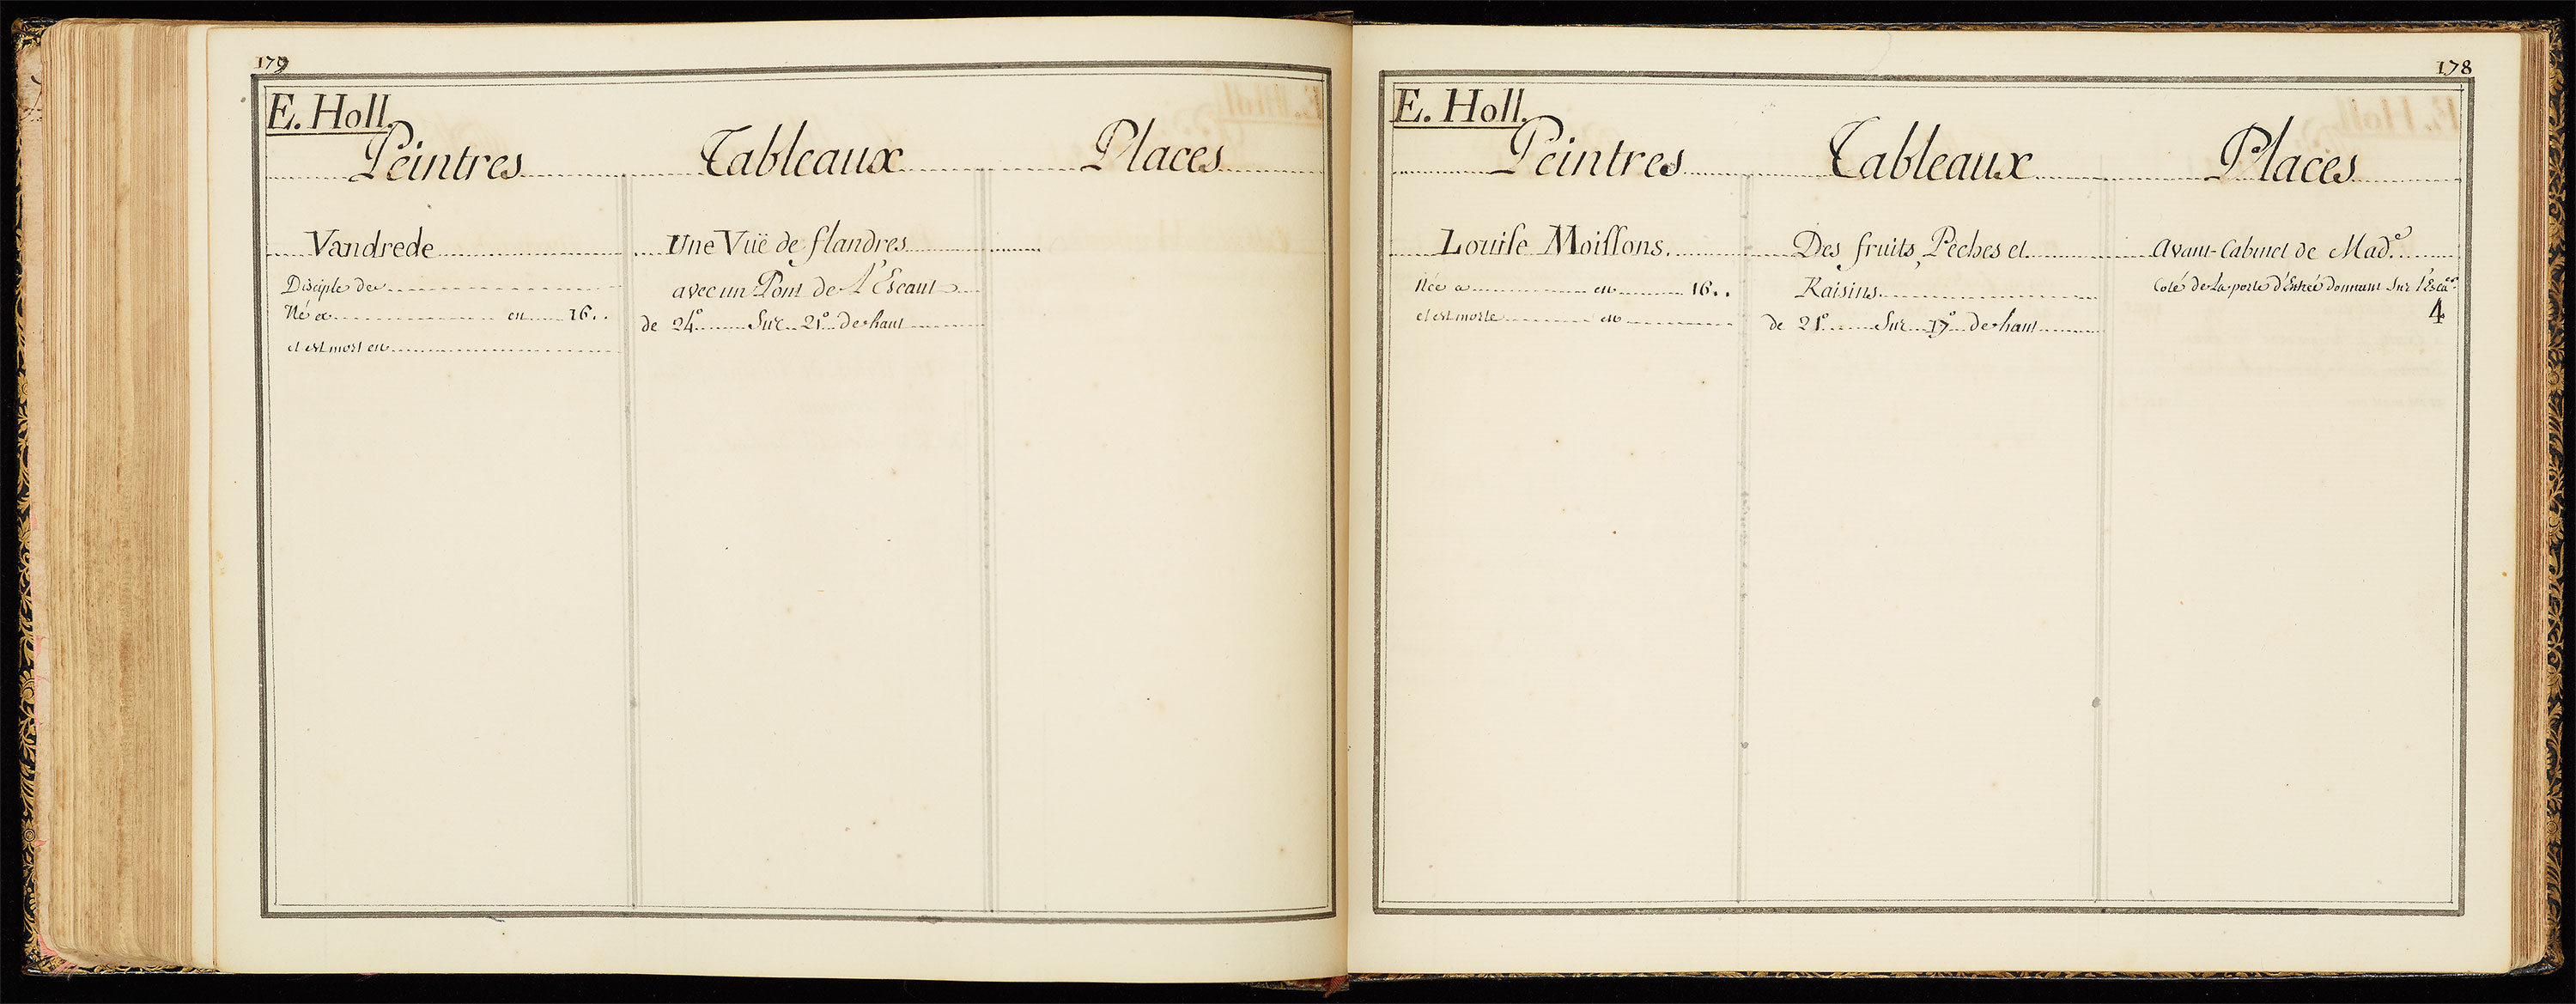 179
E. Holl.
Peintres Tableaux Places
Vandrede
Disciple de
Né a en 16..
et est mort en
Une Vuë de flandres
avec un Pont de L'Escaut
de 24.° Sur 21.° de haut
178
E. Holl.
Peintres Tableaux Places
Louise Moissons.
Née a en 16..
et est morte en
Des fruits, Peches et
Raisins
de 21.° Sur 17.° de haut
Avant-Cabinet de Mad.e
Coté de La porte d'Entrée Donnant Sur l'Esca.er
4